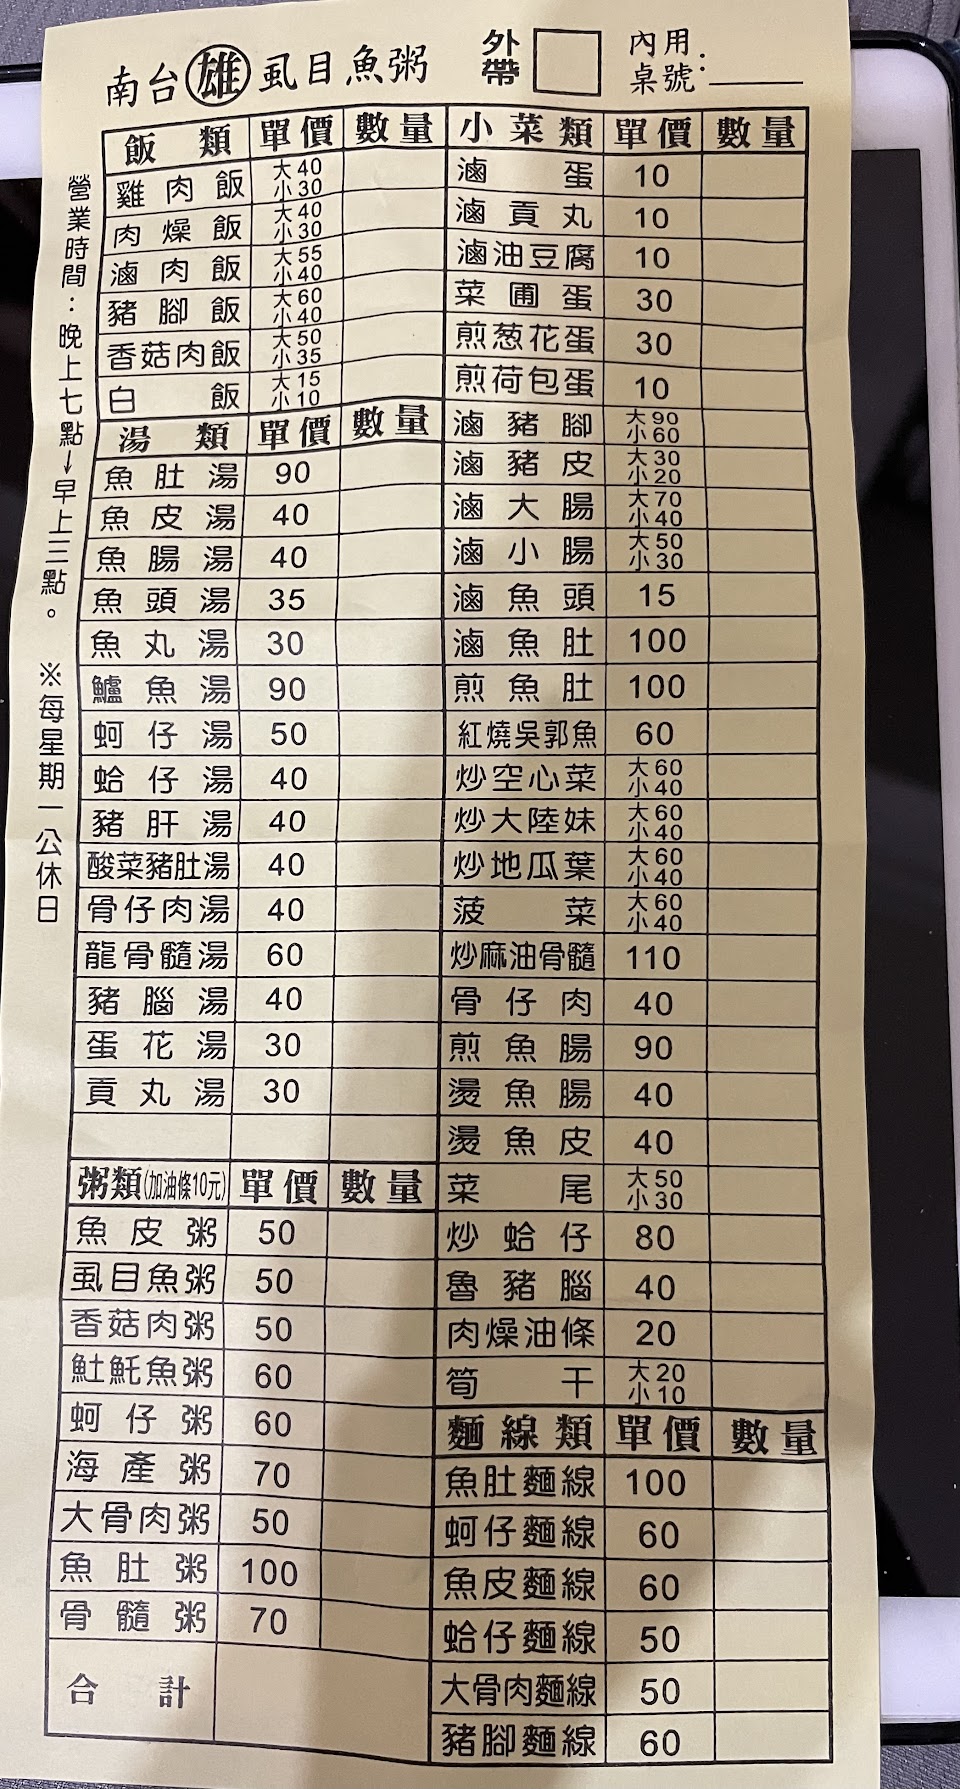 南台雄虱目魚粥 外帶 內用: 桌號:
營業時間:晚上七點→早上三點。 ※每星期一公休日
飯類 單價 數量
雞肉飯 大40 小30
肉燥飯 大40 小30
滷肉飯 大55 小40
豬腳飯 大60 小40
香菇肉飯 大50 小35
白飯 大15 小10
湯類 單價 數量
魚肚湯 90
魚皮湯 40
魚腸湯 40
魚頭湯 35
魚丸湯 30
鱸魚湯 90
蚵仔湯 50
蛤仔湯 40
豬肝湯 40
酸菜豬肚湯 40
骨仔肉湯 40
龍骨髓湯 60
豬腦湯 40
蛋花湯 30
貢丸湯 30
粥類(加油條10元) 單價 數量
魚皮粥 50
虱目魚粥 50
香菇肉粥 50
魠魠魚粥 60
蚵仔粥 60
海產粥 70
大骨肉粥 50
魚肚粥 100
骨髓粥 70
合計
小菜類 單價 數量
滷蛋 10
滷貢丸 10
滷油豆腐 10
菜圃蛋 30
煎葱花蛋 30
煎荷包蛋 10
滷豬腳 大90 小60
滷豬皮 大30 小20
滷大腸 大70 小40
滷小腸 大50 小30
滷魚頭 15
滷魚肚 100
煎魚肚 100
紅燒吳郭魚 60
炒空心菜 大60 小40
炒大陸妹 大60 小40
炒地瓜葉 大60 小40
菠菜 大60 小40
炒麻油骨髓 110
骨仔肉 40
煎魚腸 90
燙魚腸 40
燙魚皮 40
菜尾 大50 小30
炒蛤仔 80
魯豬腦 40
肉燥油條 20
筍干 大20 小10
麵線類 單價 數量
魚肚麵線 100
蚵仔麵線 60
魚皮麵線 60
蛤仔麵線 50
大骨肉麵線 50
豬腳麵線 60